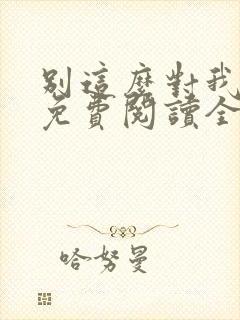 別這麼對我
免費閱讀全
哈努曼